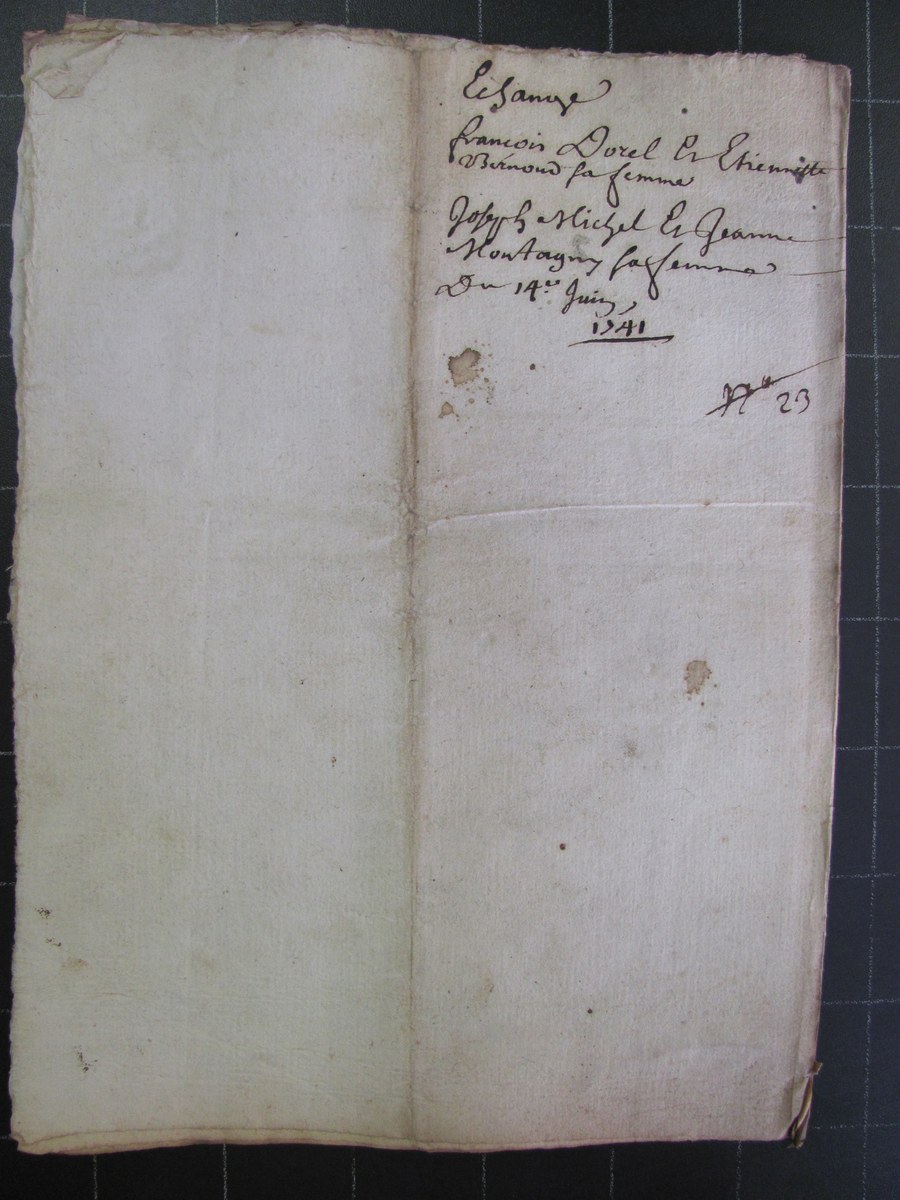 Echange
francois Dorel Et Etiennette
Bernoud sa femme
Joseph Michel Et Jeanne
Montagny sa femme
Du 14e Juin,
1741
No 23